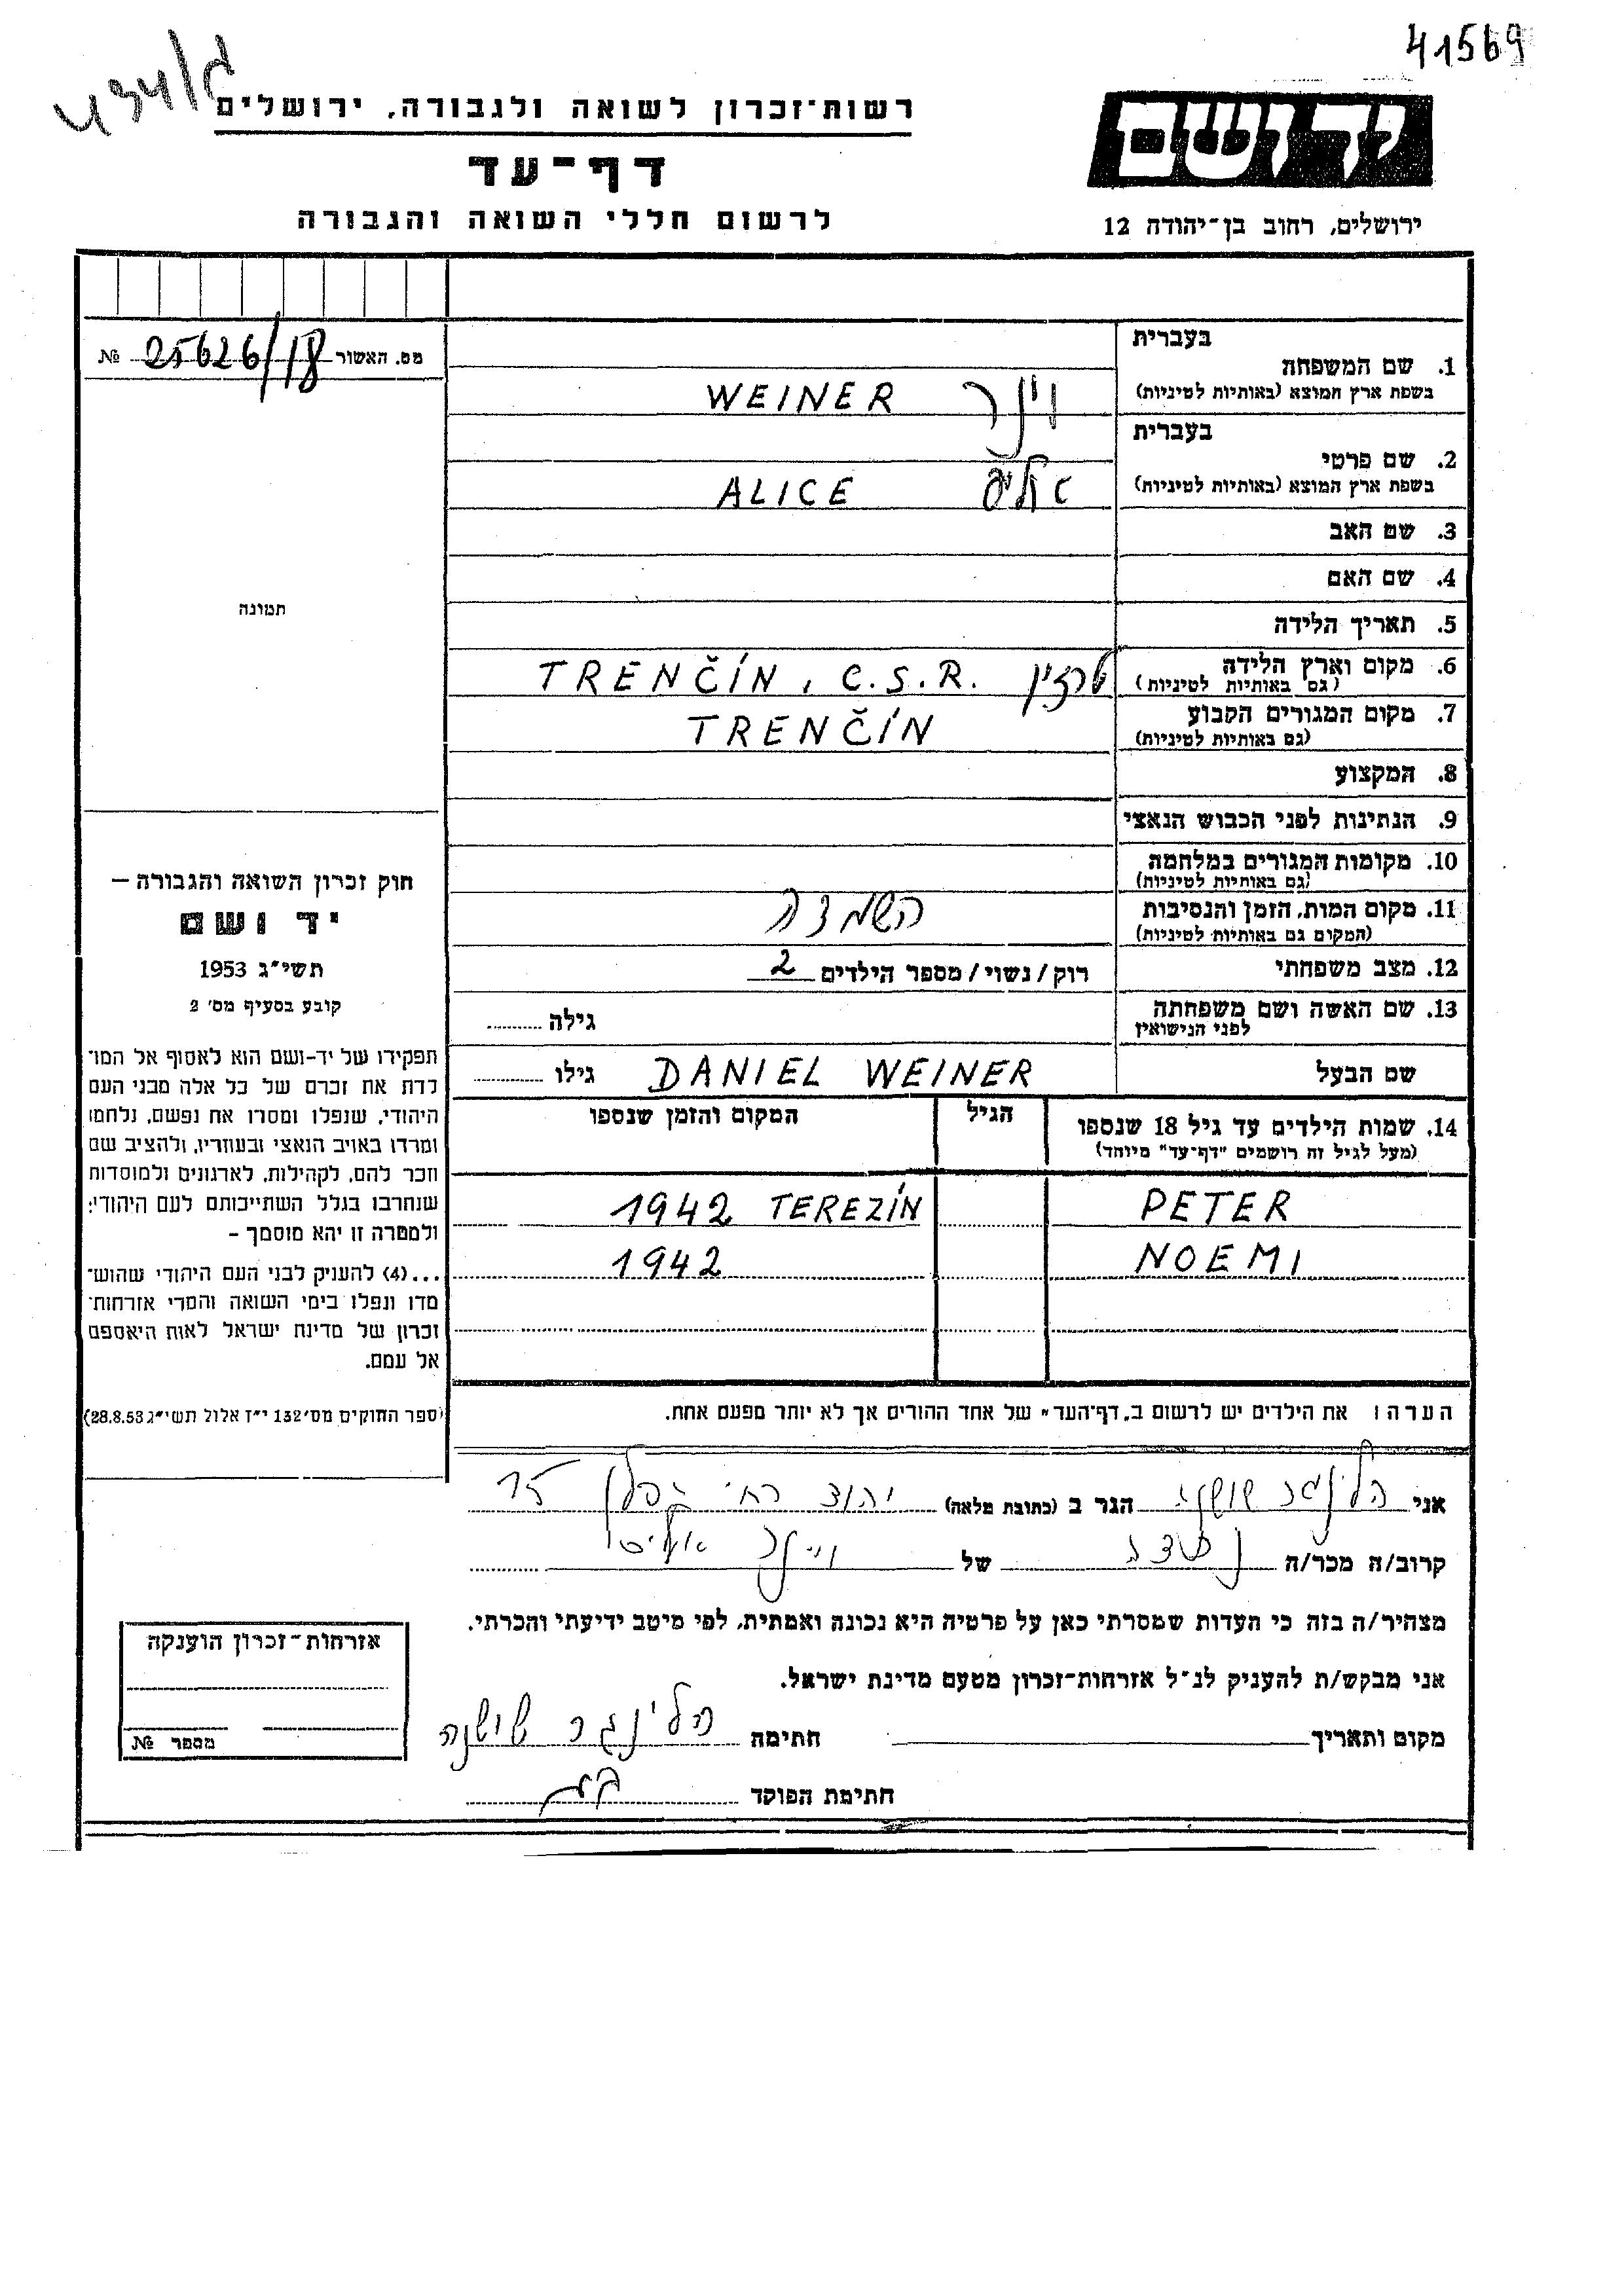 41569
רשות־זכרון לשואה ולגבורה, ירושלים
יד ושם
דף־עד
ירושלים, רחוב בן־יהודה 12
לרשום חללי השואה והגבורה
מס. האשור 25626/18 №
תמונה
חוק זכרון השואה והגבורה —
יד ושם
תשי״ג 1953
קובע בסעיף מס׳ 2
תפקידו של יד-ושם הוא לאסוף אל המו־
לדת את זכרם של כל אלה מבני העם
היהודי, שנפלו ומסרו את נפשם, נלחמו
ומרדו באויב הנאצי ובעוזריו, ולהציב שם
וזכר להם, לקהילות, לארגונים ולמוסדות
שנחרבו בגלל השתייכותם לעם היהודי;
ולמטרה זו יהא מוסמך –
...(4) להעניק לבני העם היהודי שהוש־
מדו ונפלו בימי השואה והמרי אזרחות־
זכרון של מדינת ישראל לאות היאספם
אל עמם.
(ספר החוקים מס׳ 132 י״ז אלול תשי״ג 28.8.53)
בעברית
1. שם המשפחה
בשפת ארץ המוצא (באותיות לטיניות) וינר WEINER
בעברית
2. שם פרטי
בשפת ארץ המוצא (באותיות לטיניות) ALICE
3. שם האב
4. שם האם
5. תאריך הלידה
6. מקום וארץ הלידה TRENČÍN, C.S.R.
(גם באותיות לטיניות)
7. מקום המגורים הקבוע TRENČÍN
(גם באותיות לטיניות)
8. המקצוע
9. הנתינות לפני הכבוש הנאצי
10. מקומות המגורים במלחמה
(גם באותיות לטיניות)
11. מקום המות, הזמן והנסיבות השמדה
(המקום גם באותיות לטיניות)
12. מצב משפחתי רוק/נשוי/מספר הילדים 2
13. שם האשה ושם משפחתה גילה
לפני הנישואין
שם הבעל DANIEL WEINER גילו
14. שמות הילדים עד גיל 18 שנספו הגיל המקום והזמן שנספו
(מעל לגיל זה רושמים "דף־עד" מיוחד)
PETER 1942 TEREZÍN
NOEMI 1942
הערה: את הילדים יש לרשום ב„דף־העד״ של אחד ההורים אך לא יותר מפעם אחת.
אני הלינגר שושנה הגר ב (כתובת מלאה) יהוד רח׳ קפלן 15
קרוב/ה מכר/ה של וינר
מצהיר/ה בזה כי העדות שמסרתי כאן על פרטיה היא נכונה ואמתית, לפי מיטב ידיעתי והכרתי.
אני מבקש/ת להעניק לנ״ל אזרחות־זכרון מטעם מדינת ישראל.
מקום ותאריך חתימה הלינגר שושנה
חתימת הפוקד
אזרחות־זכרון הוענקה
מספר №